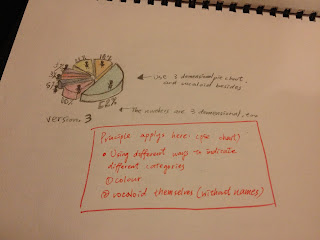 18%
5%
20%
52%
← use 3 dimensional pie chart,
and vocaloid besides
← The numbers are 3 dimensional, too
version 3
Principle apply here: (pie chart)
• Using different ways to indicate
different categories
① colour
② vocaloid themselves (without names)